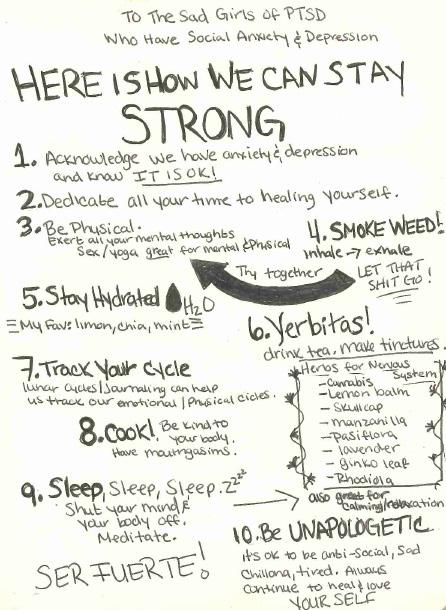 To The Sad Girls of PTSD
Who Have Social Anxiety & Depression
HERE IS HOW WE CAN STAY
STRONG
1. Acknowledge we have anxiety & depression
and know IT IS OK!
2. Dedicate all your time to healing yourself.
3. Be Physical.
Exert all your mental thoughts
Sex/yoga great for mental & Physical
4. SMOKE WEED!
inhale → exhale
LET THAT
SHIT GO!
Try together
5. Stay Hydrated H2O
My Favs: limon, chia, mint
6. Yerbitas!
drink tea. make tinctures.
Herbs for Nervous
System
- Cannabis
- Lemon balm
- Skullcap
- manzanilla
- Pasiflora
- lavender
- ginko leaf
- Rhodiola
also great for
calming/relaxation
7. Track Your Cycle
lunar cycles/Journaling can help
us track our emotional/Physical cicles.
8. COOK! Be Kind to
your body.
Have mouthgasims.
9. Sleep, Sleep, Sleep. Zzzzz
Shut your mind &
your body off.
Meditate.
10. Be UNAPOLOGETIC
its ok to be anti-social, Sad
Chillona, tired. Always
Continue to heal & love
YOUR SELF
SER FUERTE!